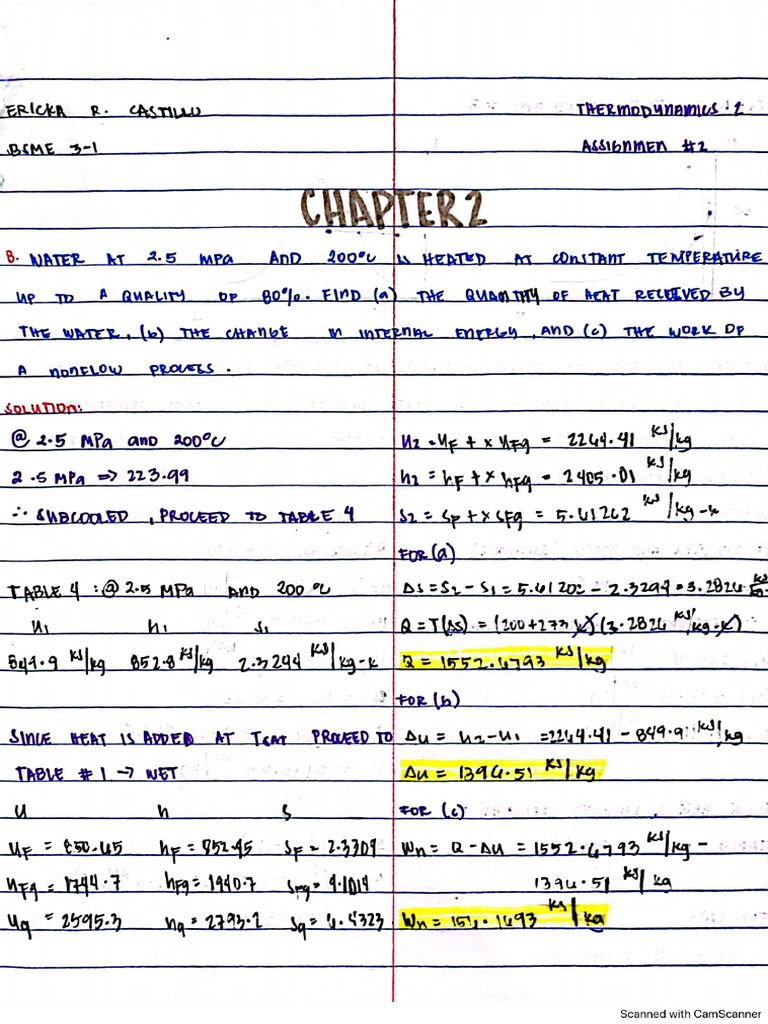 ERICKA R. CASTILLO
THERMODYNAMICS 2
BSME 3-1
ASSIGNMEN #2
CHAPTER 2
B. WATER AT 2.5 MPa AND 200°C IS HEATED AT CONSTANT TEMPERATURE
UP TO A QUALITY OF 80%. FIND (a) THE QUANTITY OF HEAT RECEIVED BY
THE WATER, (b) THE CHANGE IN INTERNAL ENERGY, AND (c) THE WORK OF
A NONFLOW PROCESS.
SOLUTION:
@ 2.5 MPa AND 200°C
2.5 MPa => 223.99
∴ SUBCOOLED, PROCEED TO TABLE 4
TABLE 4 : @ 2.5 MPa AND 200°C
u1 h1 s1
849.9 KJ/kg 852.8 KJ/kg 2.3294 KJ/kg-K
SINCE HEAT IS ADDED AT TSAT PROCEED TO
TABLE #1 → WET
u h s
uF = 850.65 hF = 852.45 sF = 2.3309
uFg = 1744.7 hFg = 1940.7 sFg = 4.1014
ug = 2595.3 hg = 2793.2 sg = 6.4323
u2 = uF + x uFg = 2246.41 KJ/kg
h2 = hF + x hFg = 2405.01 KJ/kg
s2 = sF + x sFg = 5.61202 KJ/kg-K
FOR (a)
Δs = s2 - s1 = 5.61202 - 2.3294 = 3.2826
Q = T(Δs) = (200+273 K)(3.2826 KJ/kg-K)
Q = 1552.6793 KJ/kg
FOR (b)
Δu = u2 - u1 = 2246.41 - 849.9 KJ/kg
Δu = 1396.51 KJ/kg
FOR (c)
Wn = Q - Δu = 1552.6793 KJ/kg -
1396.51 KJ/kg
Wn = 156.1693 KJ/kg
Scanned with CamScanner